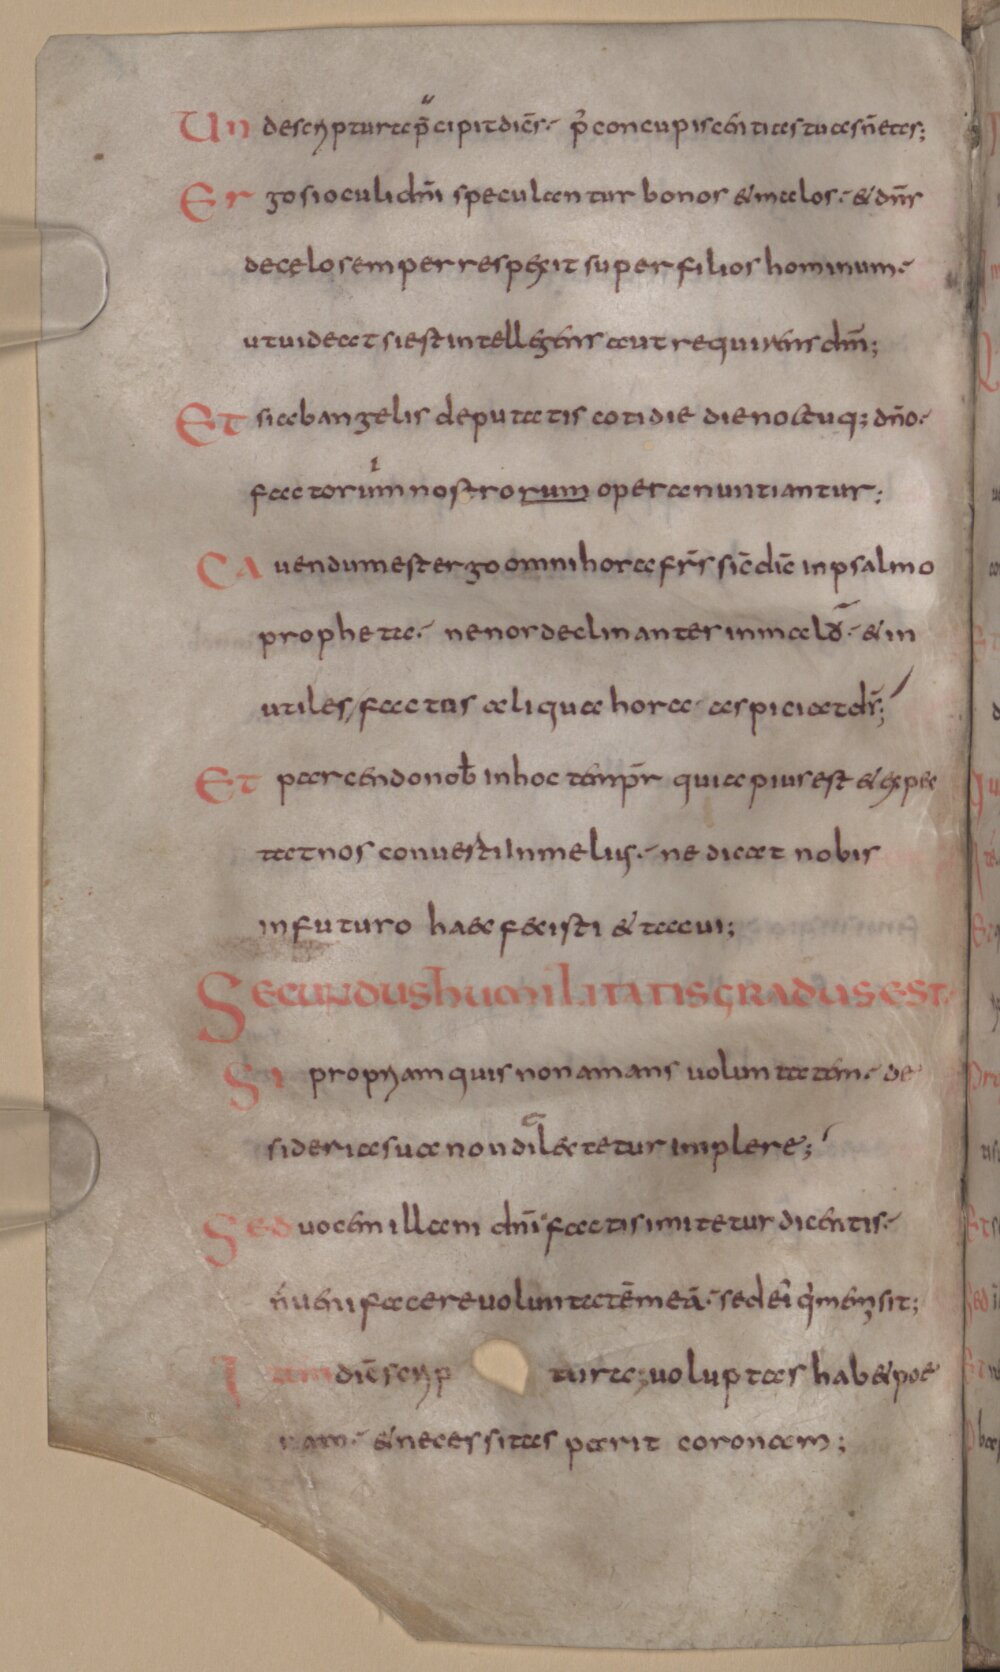 Un de scripturae p̄cipit diēs· p̄ concupiscentias tuas n̄ eas;
Er go si oculi dn̄i speculantur bonos & malos·& dn̄s
de cęlo semper respexit super filios hominum·
ut uideat si est intellegens aut requirens dm̄;
Et si ab angelis deputatis cotidie die noctuq; dn̄o·
factorum nostrorum opera nuntiantur;
CA uendum est ergo omni hora fr̄s sic̄ dic̄ in psalmo
propheta· ne nos declinantes in malo·& in
utiles factus aliqua hora aspiciat ds̄;
Et parcendo nob̄ in hoc temp̄r quia pius est & expec
tat nos conuerti in melius· ne dicat nobis
in futuro haec fecisti & tacui;
Secundus humilitatis gradus est·
Si propriam quis non amans uoluntatem· de
sideria sua non dilectetur implere;
Sed uocem illam dn̄i factis imitetur dicentis·
n̄ ueni facere uoluntatēm meā· sed ei q̇ me misit;
Item dic̄ scrip turae; uoluptas hab& poe
nam·& necessitas parit coronam;